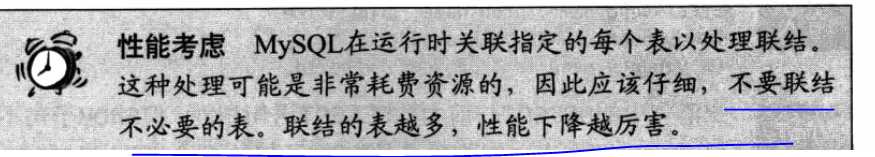 性能考虑 MySQL在运行时关联指定的每个表以处理联结。
这种处理可能是非常耗费资源的，因此应该仔细，不要联结
不必要的表。联结的表越多，性能下降越厉害。